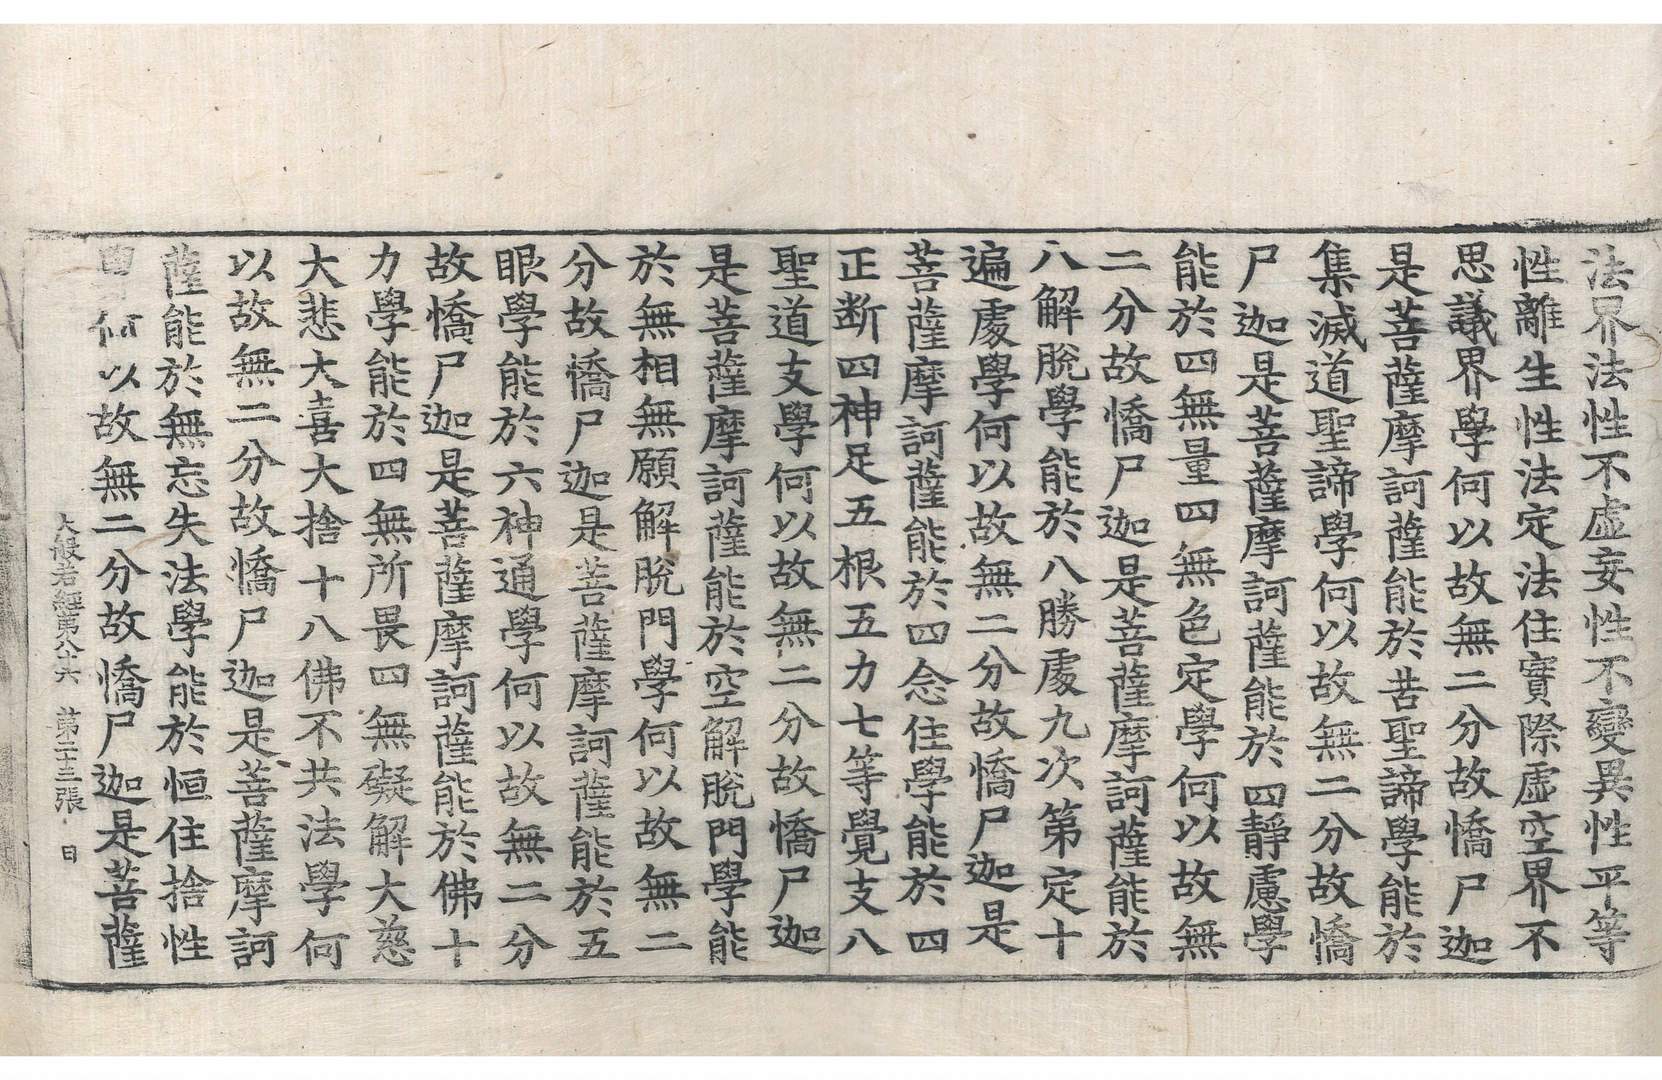 法界法性不虛妄性不變異性平等
性離生性法定法住實際虛空界不
思議界學何以故無二分故憍尸迦
是菩薩摩訶薩能於苦聖諦學能於
集滅道聖諦學何以故無二分故憍
尸迦是菩薩摩訶薩能於四靜慮學
能於四無量四無色定學何以故無
二分故憍尸迦是菩薩摩訶薩能於
八解脫學能於八勝處九次第定十
遍處學何以故無二分故憍尸迦是
菩薩摩訶薩能於四念住學能於四
正斷四神足五根五力七等覺支八
聖道支學何以故無二分故憍尸迦
是菩薩摩訶薩能於空解脫門學能
於無相無願解脫門學何以故無二
分故憍尸迦是菩薩摩訶薩能於五
眼學能於六神通學何以故無二分
故憍尸迦是菩薩摩訶薩能於佛十
力學能於四無所畏四無礙解大慈
大悲大喜大捨十八佛不共法學何
以故無二分故憍尸迦是菩薩摩訶
薩能於無忘失法學能於恒住捨性
何以故無二分故憍尸迦是菩薩
大般若經第八十六 第二十三張 日